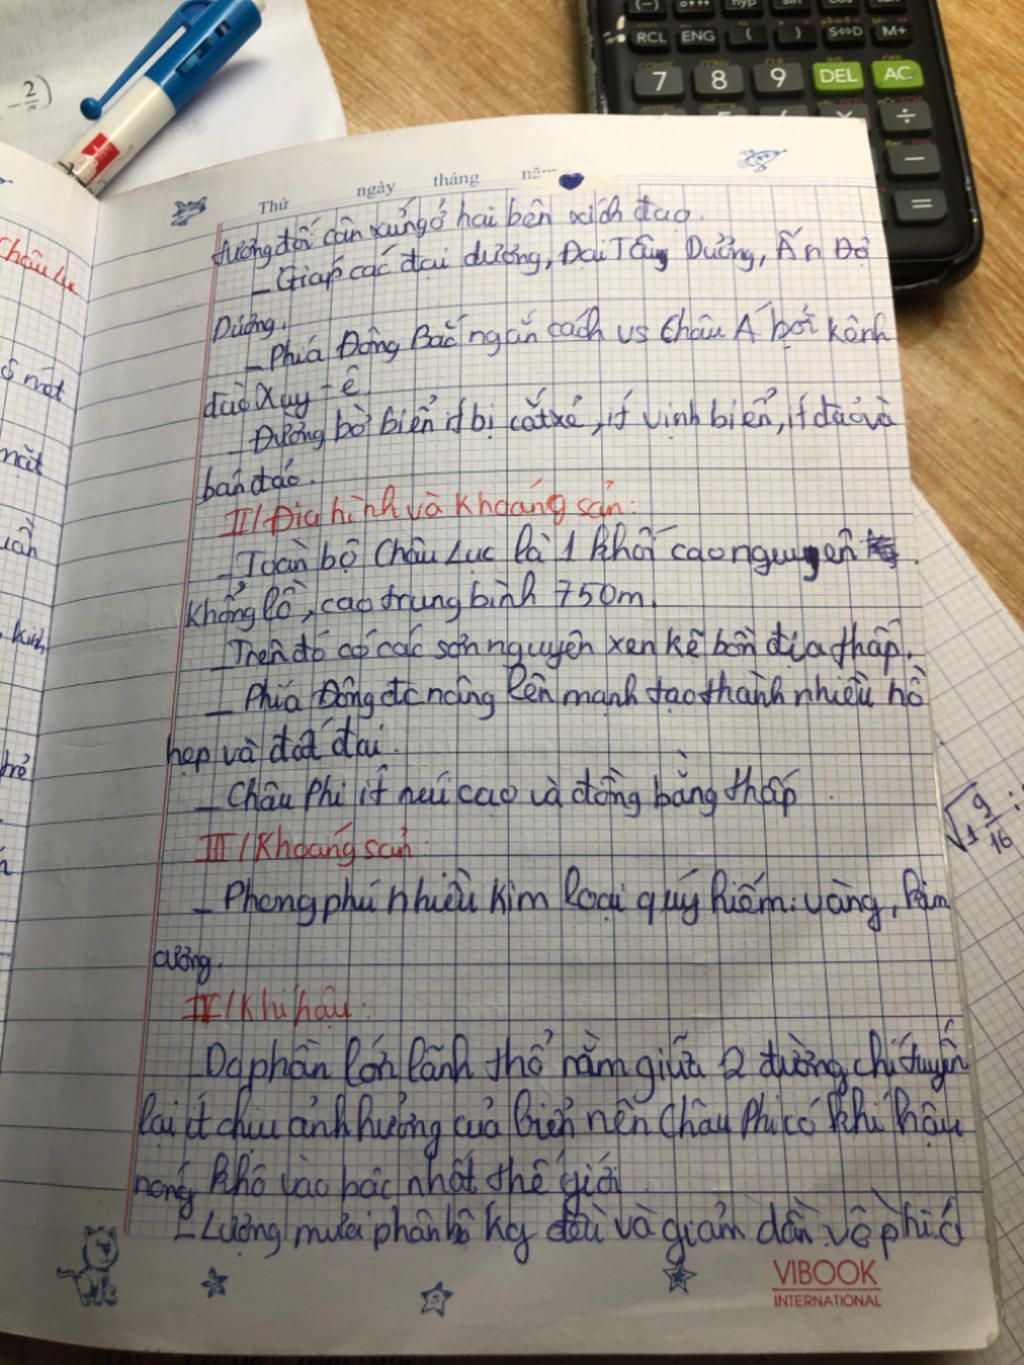 RCL ENG ( ) S⇔D M+
7 8 9 DEL AC
÷
−
=
-2/
Thứ ngày tháng
tương đối cân xứng ở hai bên xích đạo.
_ Giáp các đại dương, Đại Tây Dương, Ấn Độ
Dương.
_ Phía Đông Bắc ngăn cách vs Châu Á bởi kênh
đào Xuy - ê.
_ Đường bờ biển ít bị cắt xẻ, ít vịnh biển, ít đảo và
bán đảo.
II/ Địa hình và khoáng sản:
_ Toàn bộ Châu Lục là 1 khối cao nguyên
khổng lồ, cao trung bình 750m.
_ Trên đó có các sơn nguyên xen kẽ bồn địa thấp.
_ Phía Đông đc nâng lên mạnh tạo thành nhiều hồ
hẹp và dài.
_ Châu Phi ít núi cao và đồng bằng thấp.
III/ Khoáng sản
_ Phong phú nhiều kim loại quý hiếm: vàng, kim
cương.
IV/ Khí hậu:
_ Do phần lớn lãnh thổ nằm giữa 2 đường chí tuyến
lại ít chịu ảnh hưởng của biển nên Châu Phi có khí hậu
nóng khô vào bậc nhất thế giới
_ Lượng mưa phân bố kg đều và giảm dần về phía
VIBOOK
INTERNATIONAL
Châu Lục
√1 9/16 :